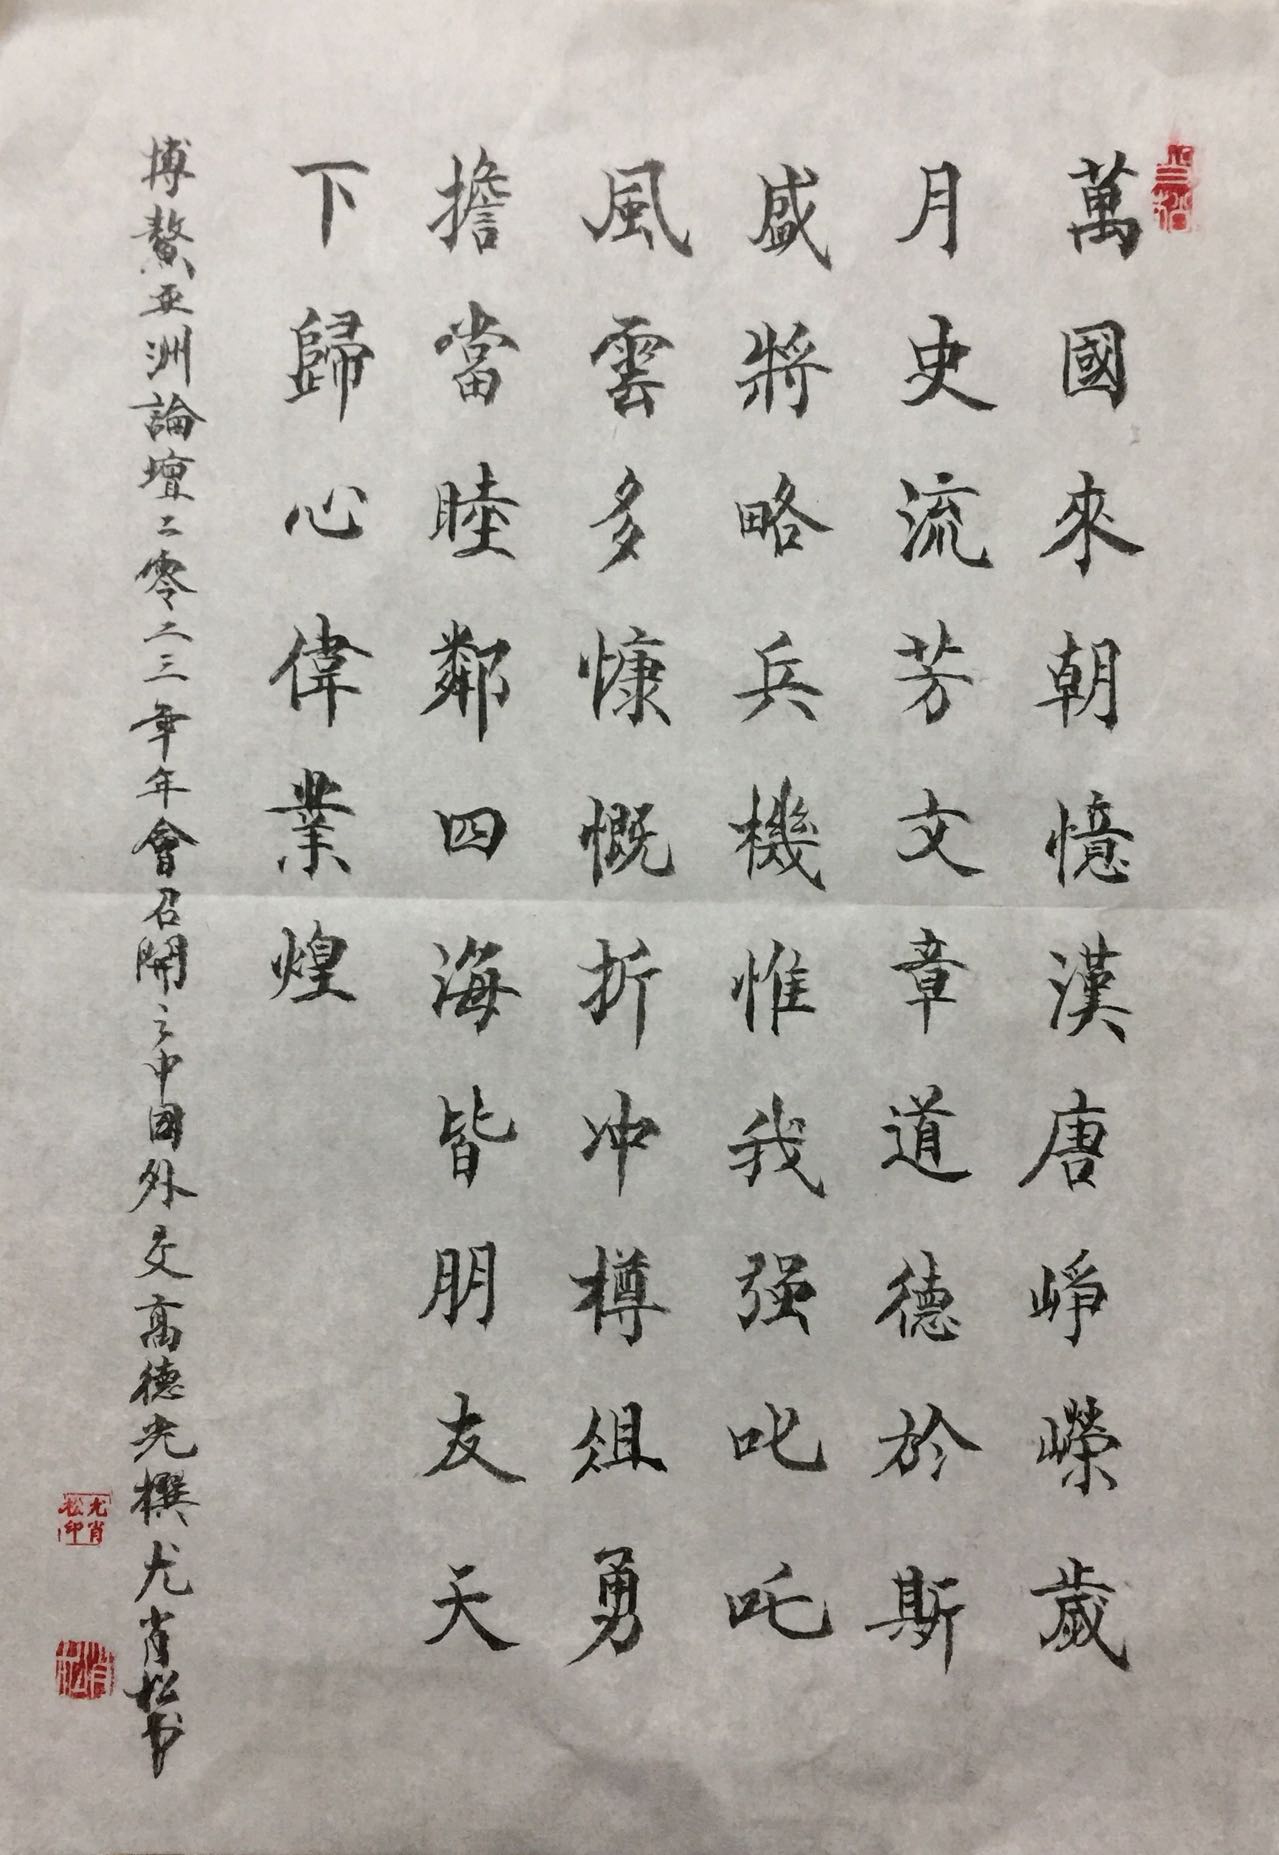 萬國來朝憶漢唐崢嶸歲
月史流芳文章道德於斯
盛將略兵機惟我强叱吒
風雲多慷慨折冲樽俎勇
擔當睦鄰四海皆朋友天
下歸心偉業煌
博鰲亚洲論壇二零二三年年會召開之中國外交高德光撰尤肖松书
尤肖松印